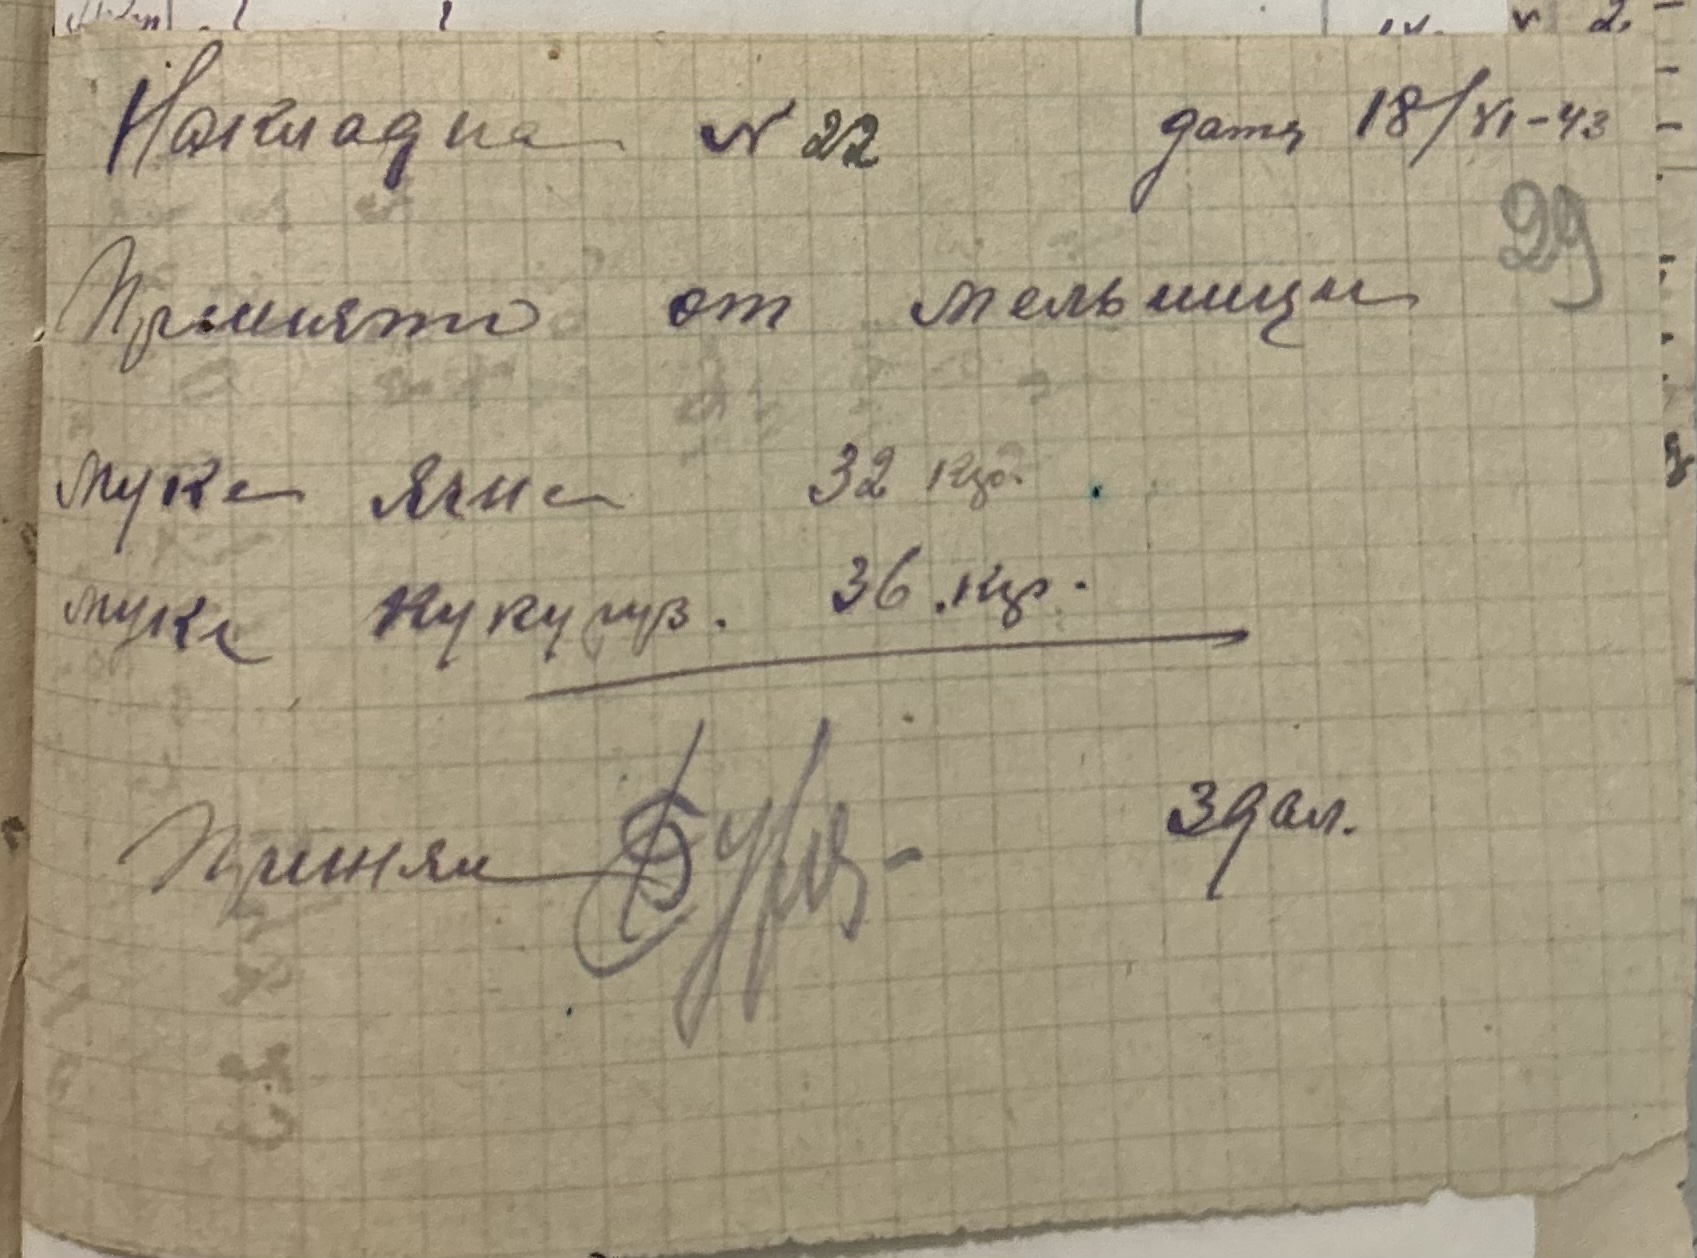 Накладна № 22 дата 18/XI-43
29
Принято от мельници
мука ячна 32 кгр.
мука кукуруз. 36 кгр.
Принял Здал.